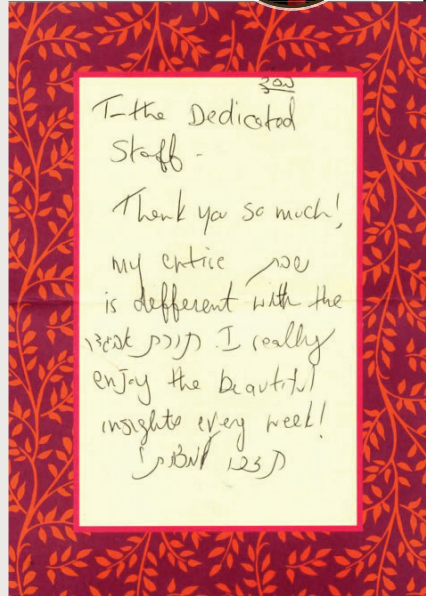 בסד
To the Dedicated
Staff -
Thank you so much!
my entire שבת
is defferent with the
תורת אביגדור. I really
enjoy the beautiful
insights every week!
תזכו למצות!